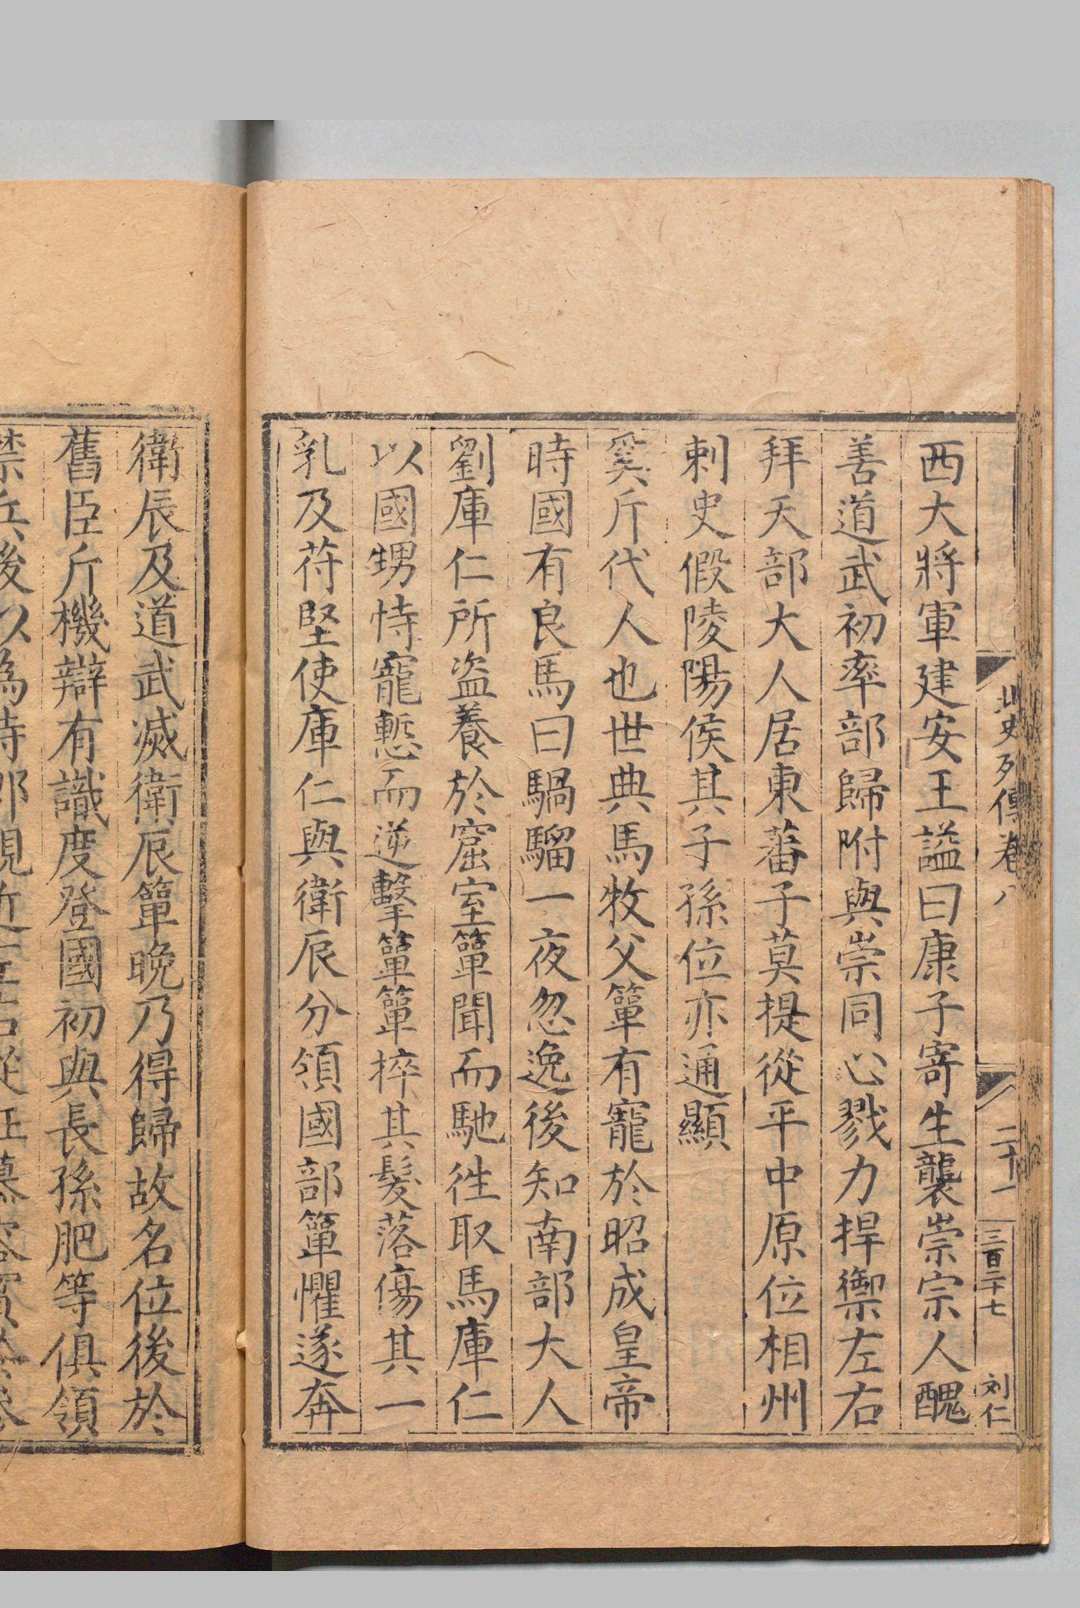 北史列傳卷八
二十一
三百二十七
刘仁
西大將軍建安王謚曰康子寄生襲崇宗人醜
善道武初率部歸附與崇同心戮力捍禦左右
拜天部大人居東蕃子莫提從平中原位相州
刺史假陵陽侯其子孫位亦通顯
奚斤代人也世典馬牧父簞有寵於昭成皇帝
時國有良馬曰騧騮一夜忽逸後知南部大人
劉庫仁所盜養於窟室簞聞而馳徃取馬庫仁
以國甥恃寵慙而逆擊簞簞捽其髮落傷其一
乳及苻堅使庫仁與衛辰分領國部簞懼遂奔
衛辰及道武滅衛辰簞晚乃得歸故名位後於
舊臣斤機辯有識度登國初與長孫肥等俱領
禁兵後以為侍郎親近左右從征慕容寳於叅